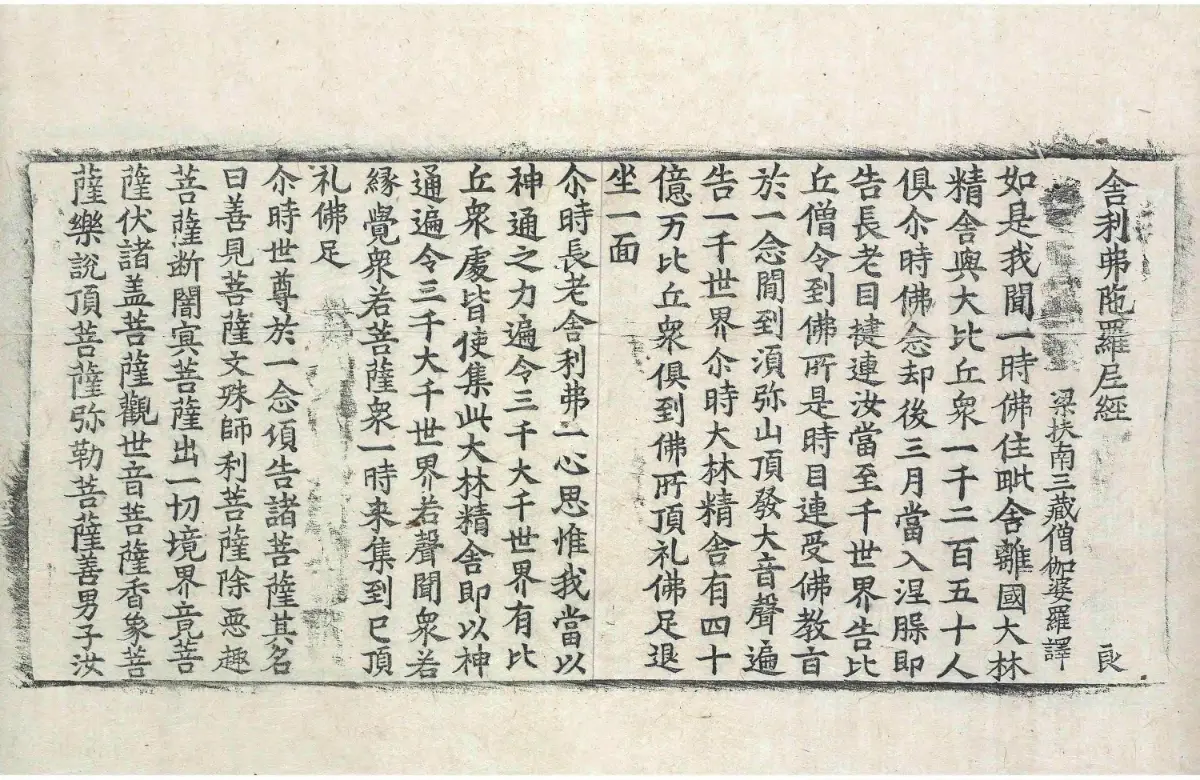 舍利弗陁羅尼經 良
梁扶南三藏僧伽婆羅譯
如是我聞一時佛住毗舍離國大林
精舍與大比丘衆一千二百五十人
俱尒時佛念却後三月當入涅槃即
告長老目揵連汝當至千世界告比
丘僧令到佛所是時目連受佛教言
於一念間到湏弥山頂發大音聲遍
告一千世界尒時大林精舍有四十
億万比丘衆俱到佛所頂礼佛足退
坐一面
尒時長老舍利弗一心思惟我當以
神通之力遍令三千大千世界有比
丘衆處皆使集此大林精舍即以神
通遍令三千大千世界若聲聞衆若
緣覺衆若菩薩衆一時来集到已頂
礼佛足
尒時世尊於一念頃告諸菩薩其名
曰善見菩薩文殊師利菩薩除惡趣
菩薩断闇冥菩薩出一切境界竟菩
薩伏諸盖菩薩觀世音菩薩香象菩
薩樂說頂菩薩弥勒菩薩善男子汝